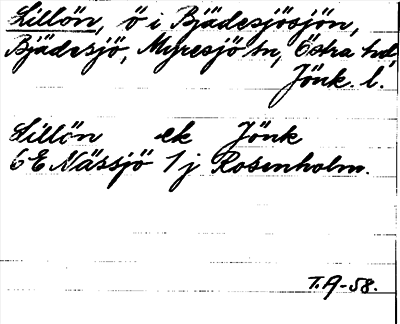 Lillön, ö i Bjädesjösjön,
Bjädesjö, Myresjö sn, Östra hd,
Jönk. l.
Lillön ek Jönk
6E Nässjö 1j Rosenholm.
T.A-58.